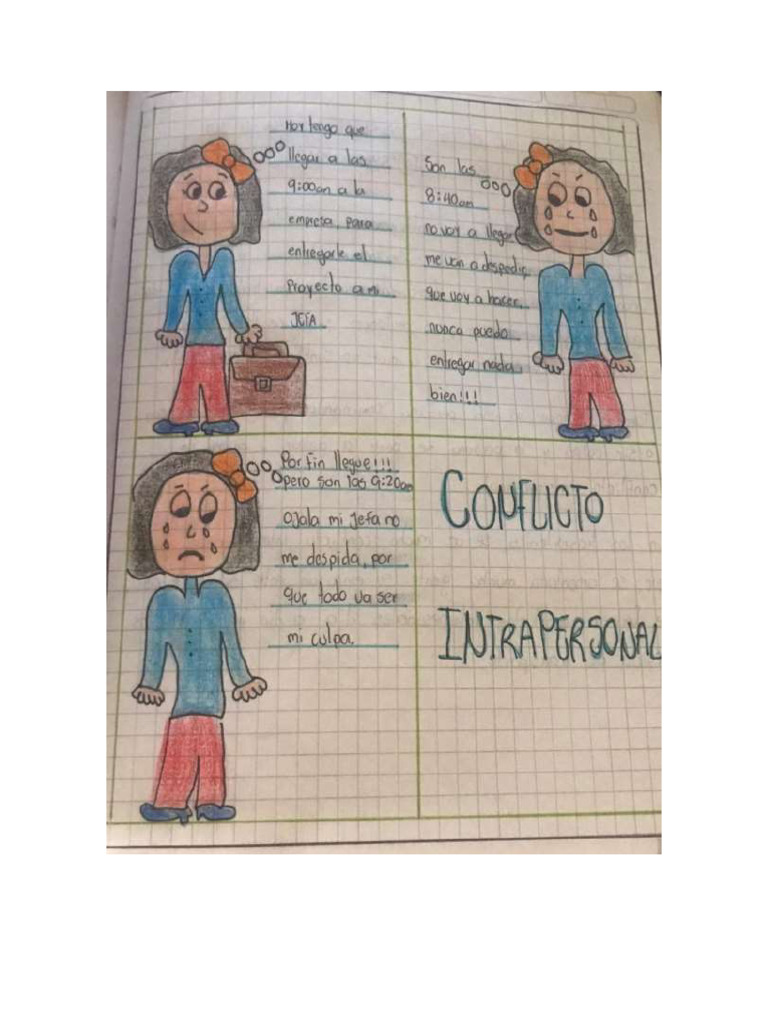 Hoy tengo que
llegar a las
9:00am a la
empresa para
entregarle el
Proyecto a mi
JEFA
Son las
8:40am
no voy a llegar
me van a despedir,
que voy a hacer,
nunca puedo
entregar nada
bien!!!
Por fin llegue!!!
pero son las 9:20am
ojala mi jefa no
me despida, por
que todo va ser
mi culpa.
CONFLICTO
INTRAPERSONAL